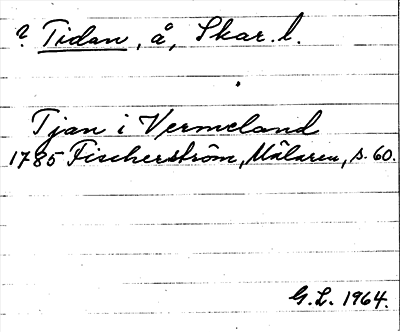 ? Tidan, å, Skar. l.
Tjan i Vermeland
1785 Fischerström, Mälaren, s. 60.
G.L. 1964.